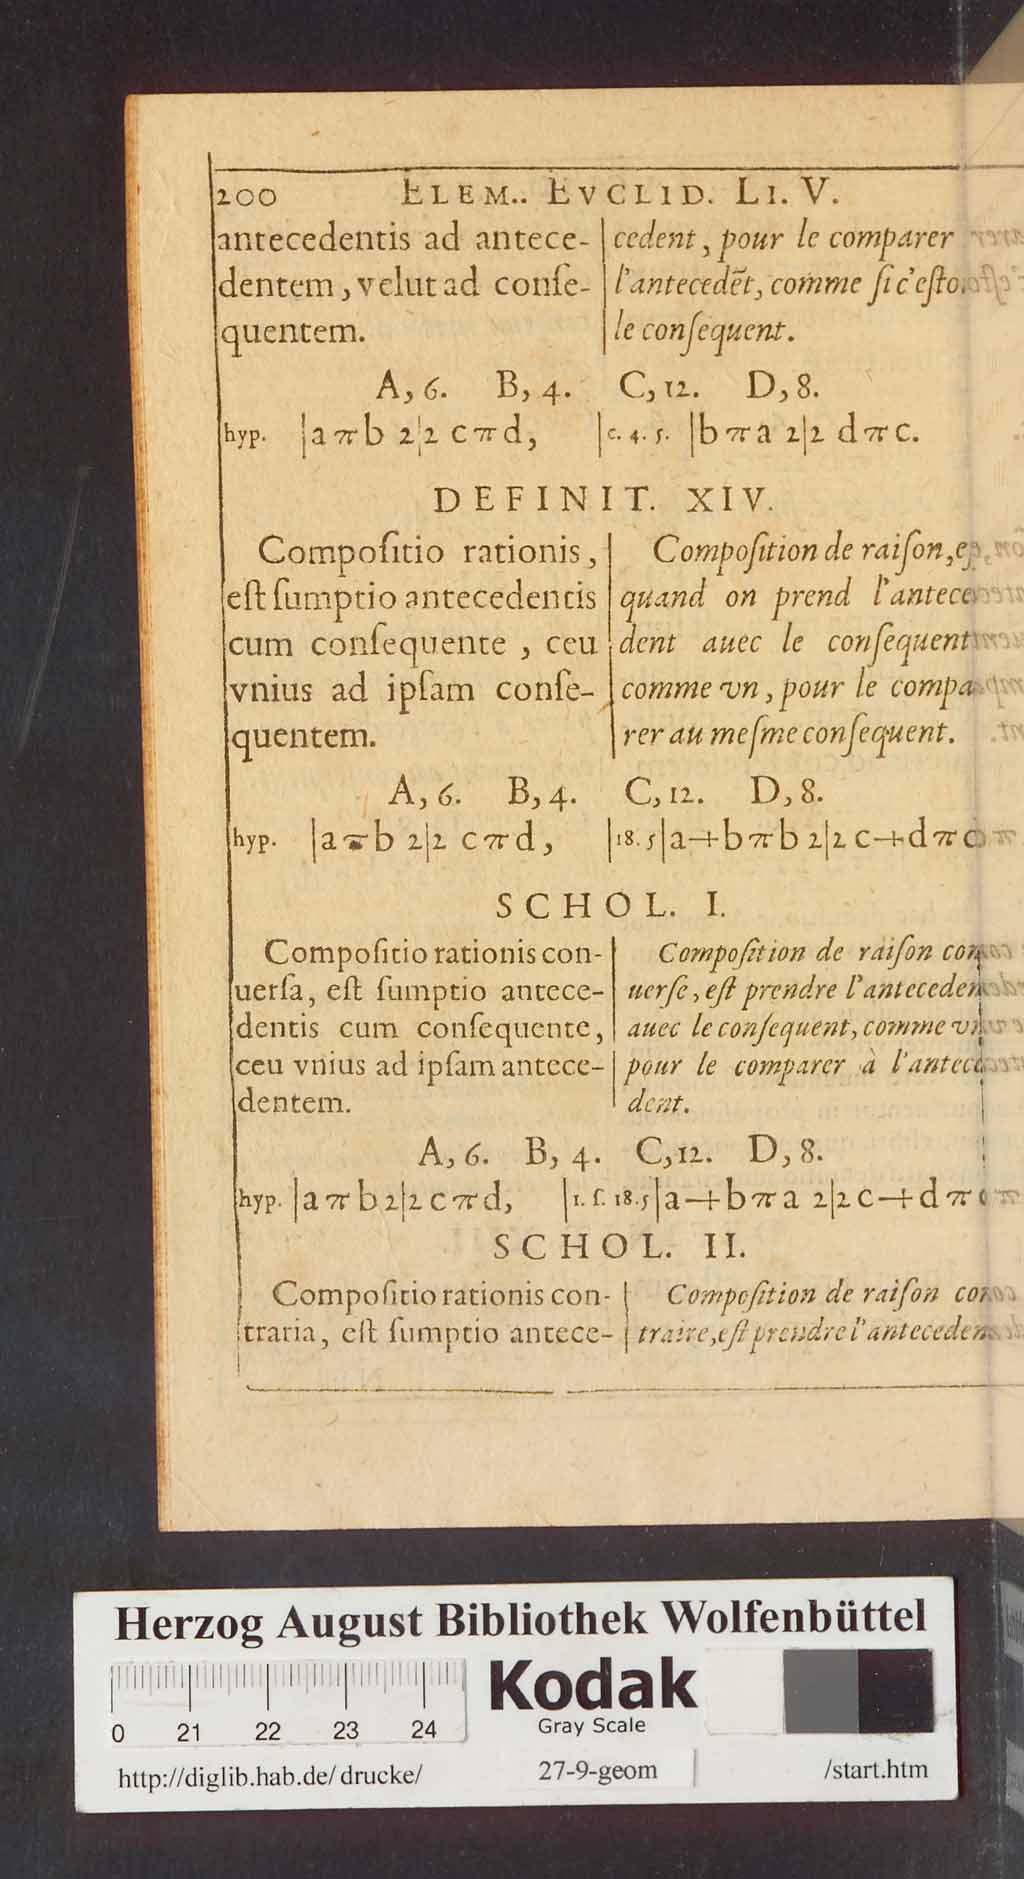 200 ELEM.. EVCLID. LI. V.
antecedentis ad antece-
dentem, velut ad conſe-
quentem.
cedent, pour le comparer
l'antecedẽt, comme ſi c'eſto
le conſequent.
A, 6. B, 4. C, 12. D, 8.
hyp. |a π b 2|2 c π d, |c. 4. 5. |b π a 2|2 d π c.
DEFINIT. XIV.
Compoſitio rationis,
eſt ſumptio antecedentis
cum conſequente, ceu
vnius ad ipſam conſe-
quentem.
Compoſition de raiſon,
quand on prend l'antece
dent auec le conſequent
comme vn, pour le compa
rer au meſme conſequent.
A, 6. B, 4. C, 12. D, 8.
hyp. |a π b 2|2 c π d, |18. 5|a+b π b 2|2 c+d π
SCHOL. I.
Compoſitio rationis con-
uerſa, eſt ſumptio antece-
dentis cum conſequente,
ceu vnius ad ipſam antece-
dentem.
Compoſition de raiſon con
uerſe, eſt prendre l'anteceden
auec le conſequent, comme vn
pour le comparer à l'antece
dent.
A, 6. B, 4. C, 12. D, 8.
hyp. |a π b 2|2 c π d, |1. ſ. 18. 5|a+b π a 2|2 c+d π c
SCHOL. II.
Compoſitio rationis con-
traria, eſt ſumptio antece-
Compoſition de raiſon con
traire, eſt prendre l'anteceden
Herzog August Bibliothek Wolfenbüttel
0 21 22 23 24
Kodak
Gray Scale
http://diglib.hab.de/drucke/ 27-9-geom /start.htm